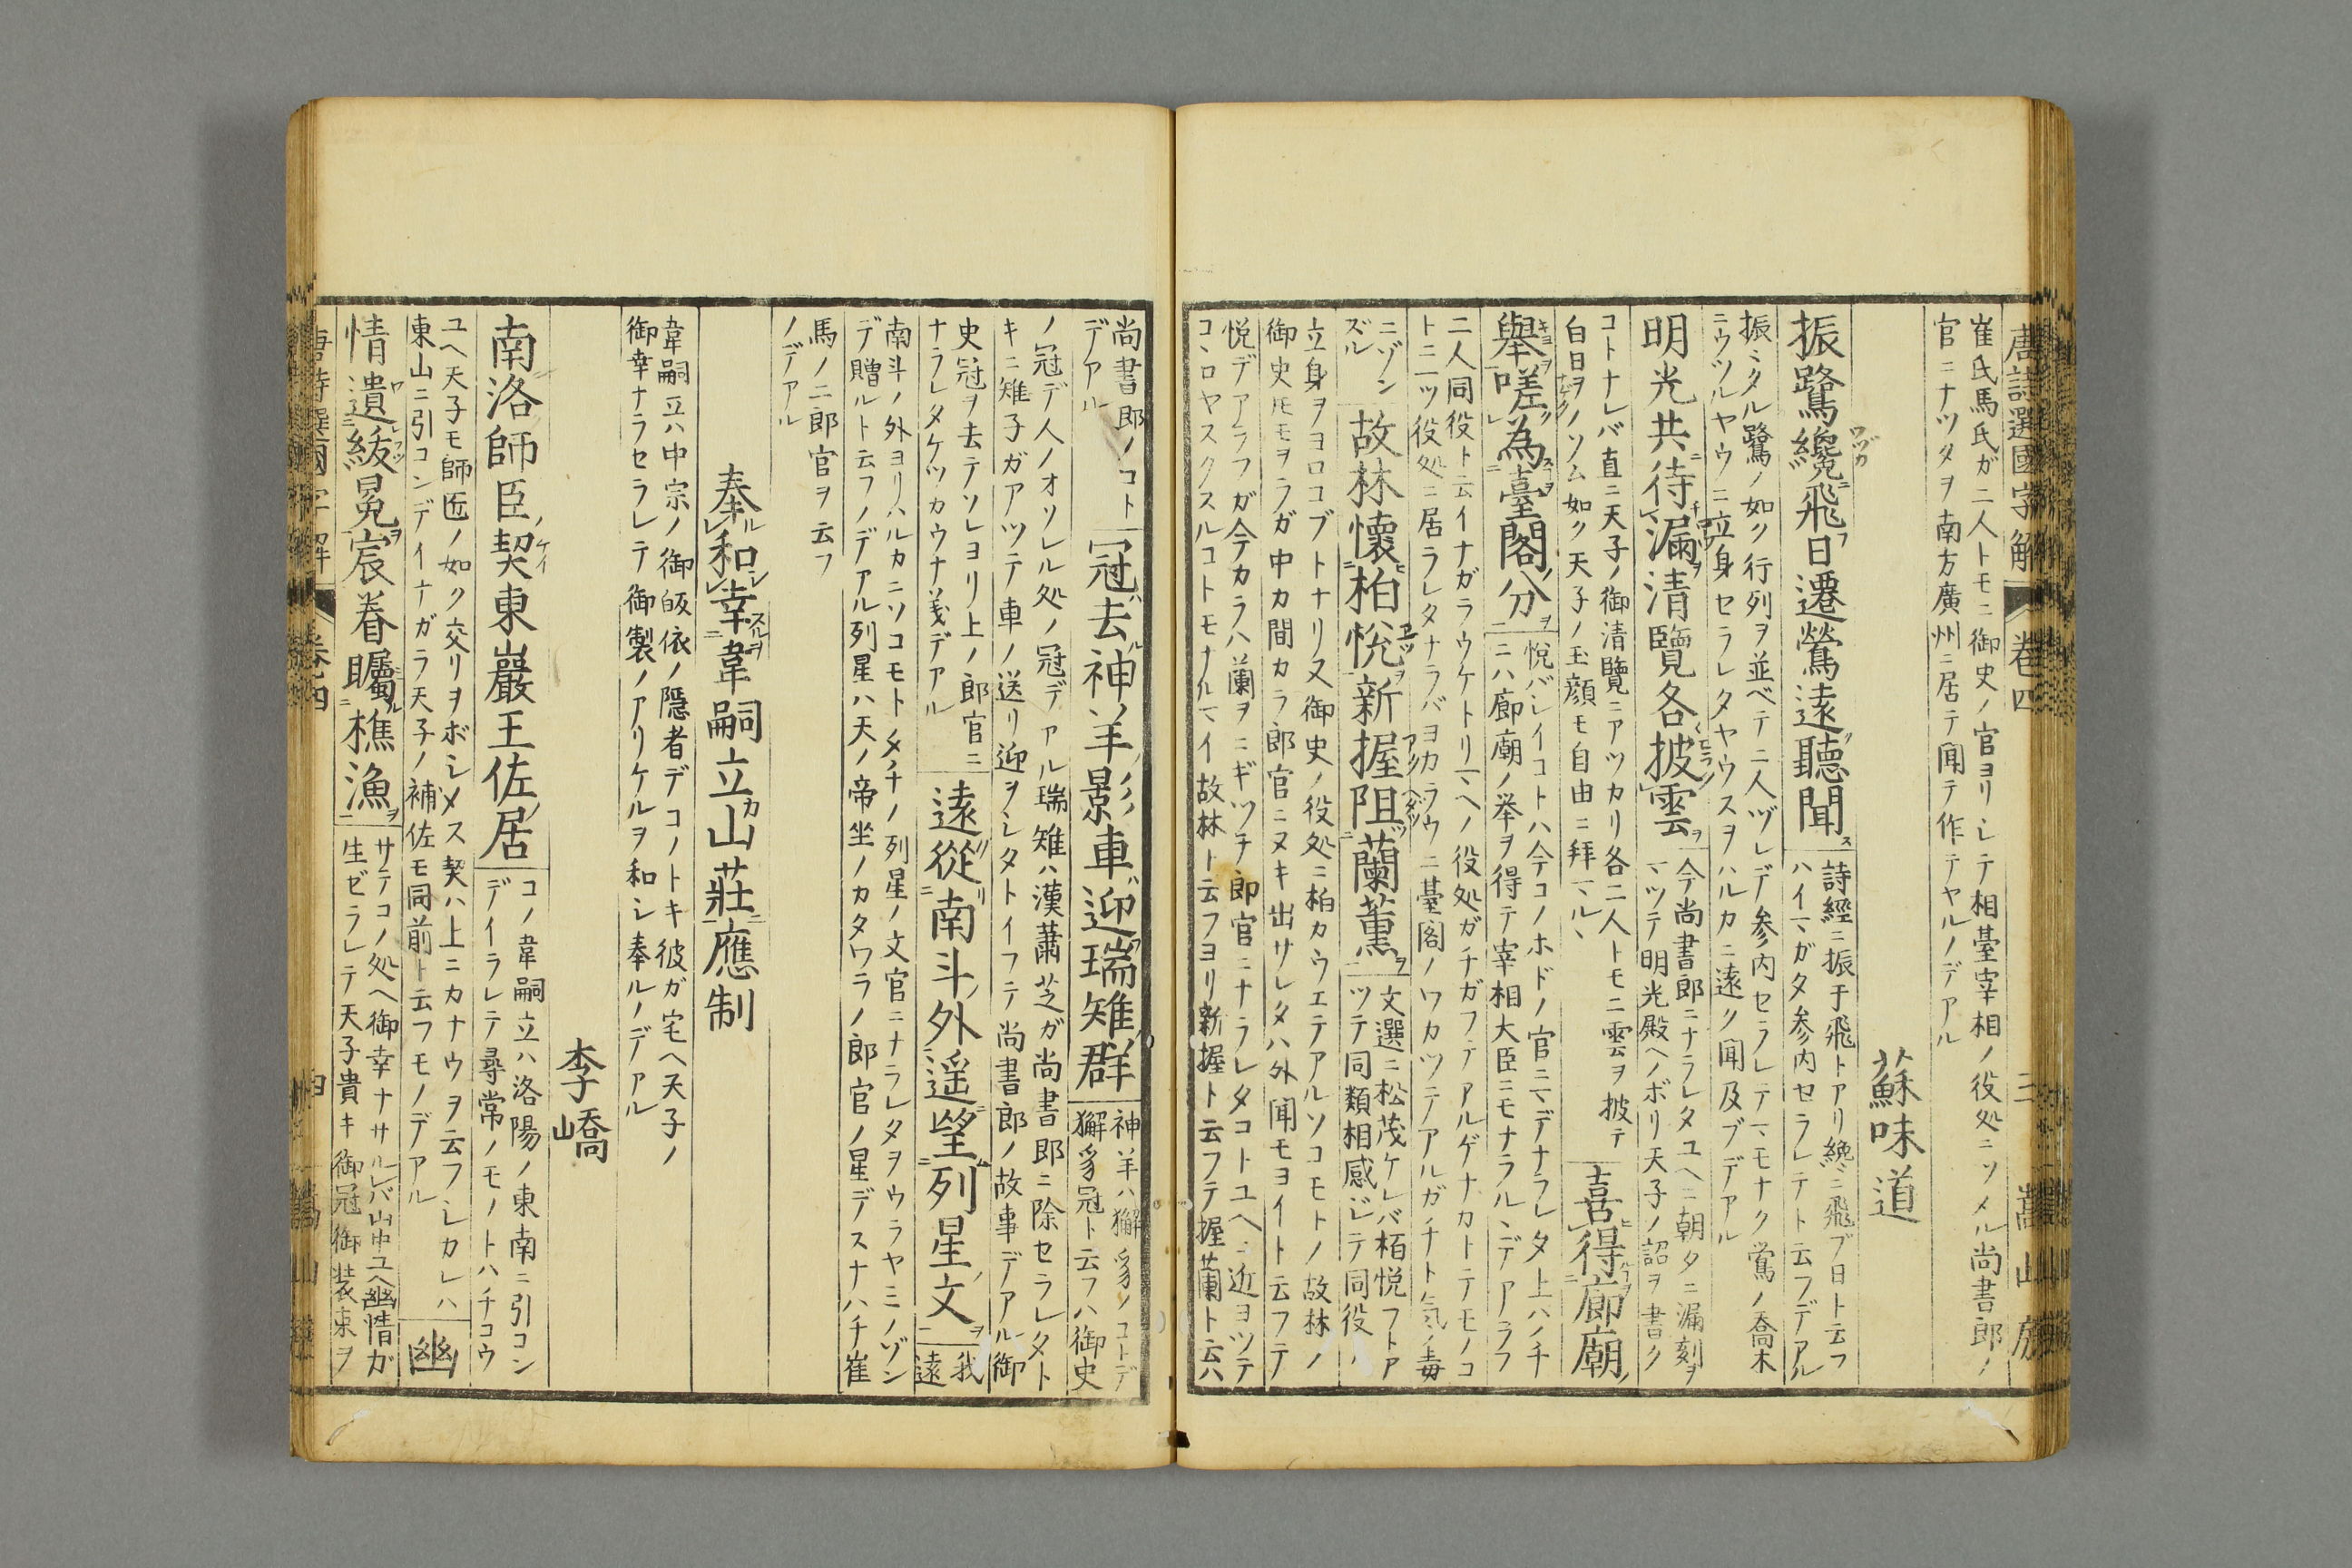 唐詩選國字解 卷四 三 嵩山房
崔氏馬氏ガ二人トモニ御史ノ官ヨリシテ相臺宰相ノ役処ニツメル尚書郎ノ
官ニナツタヲ南方廣州ニ居テ聞テ作テヤルノデアル
蘇味道
振鷺纔飛日遷鶯遠聽聞
詩經ニ振于飛トアリ纔ニ飛ブ日ト云フ
ハイマガタ参内セラレテト云フデアル
振ミタル鷺ノ如ク行列ヲ並ベテ二人ヅレデ参内セラレテマモナク鶯ノ喬木
ニウツルヤウニ立身セラレタヤウスヲハルカニ遠ク聞及ブデアル
明光共待漏清覽各披雲
今尚書郎ニナラレタユヘニ朝タニ漏刻ヲ
マツテ明光殿ヘノボリ天子ノ詔ヲ書ク
コトナレバ直ニ天子ノ御清覽ニアツカリ各二人トモニ雲ヲ披テ
白日ヲノソム如ク天子ノ玉顔モ自由ニ拜マル丶
喜得廊廟
舉嗟為臺閣分
悦バシイコトハ今コノホドノ官ニマデナラレタ上ハノチ
ニハ廊廟ノ挙ヲ得テ宰相大臣ニモナラル丶デアラフ
二人同役ト云イナガラウケトリマヘノ役処ガチガフデアルゲナカトテモノコ
トニ一ツ役処ニ居ラレタナラバヨカラウニ臺閣ノワカツテアルガチト気ノ毒
ニゾン
ズル
故林懷柏悅新握阻蘭薫
文選ニ松茂ケレバ栢悦フトア
ツテ同類相感ジテ同役ノ
立身ヲヨロコブトナリ又御史ノ役処ニ柏カウエテアルソコモトノ故林ノ
御史圧モヲラガ中カ間カラ郎官ニヌキ出サレタハ外聞モヨイト云フテ
悦デアラフガ今カラハ蘭ヲニギツチ郎官ニナラレタコトユヘニ近ヨツテ
コ丶ロヤスクスルコトモナルマイ故林ト云フヨリ新握ト云フテ握蘭ト云ハ
尚書郎ノコト
デアル
冠去神羊影車迎瑞雉群
神羊ハ獬豸ノコトデ
獬豸冠ト云フハ御史
ノ冠デ人ノオソレル処ノ冠デアル瑞雉ハ漢蕭芝ガ尚書郎ニ除セラレタト
キニ雉子ガアツテ車ノ送リ迎ヲシタトイフテ尚書郎ノ故事デアル御
史冠ヲ去テソレヨリ上ノ郎官ニ
ナラレタケツカウナ義デアル
遠從南斗外遥望列星文
我
遠
南斗ノ外ヨリハルカニソコモトタチノ列星ノ文官ニナラレタヲウラヤミノゾン
デ贈ルト云フノデアル列星ハ天ノ帝坐ノカタワラノ郎官ノ星デスナハチ崔
馬ノ二郎官ヲ云フ
ノデアル
奉和幸韋嗣立山莊應制
韋嗣立ハ中宗ノ御皈依ノ隱者デコノトキ彼ガ宅ヘ天子ノ
御幸ナラセラレテ御製ノアリケルヲ和シ奉ルノデアル
李嶠
南洛師臣契東巖王佐居
コノ韋嗣立ハ洛陽ノ東南ニ引コン
デイラレテ尋常ノモノトハチコウ
ユヘ天子モ師匠ノ如ク交リヲボシメス契ハ上ニカナウヲ云フシカレハ
東山ニ引コンデイナガラ天子ノ補佐モ同前ト云フモノデアル
幽
情遺紱冕宸眷矚樵漁
サテコノ処ヘ御幸ナサルレバ山中ユヘ幽情ガ
生ゼラレテ天子貴キ御冠御装束ヲ